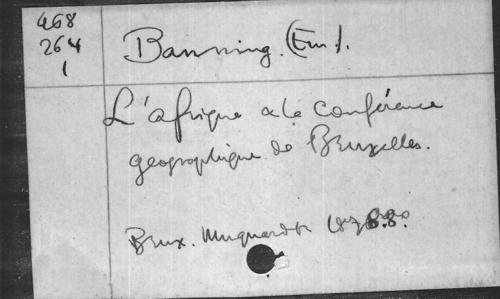 468
264
1
Banning. (Em.).
L'afrique a la Conférence
geographique de Bruxelles.
Brux. Muquardt 8.8.